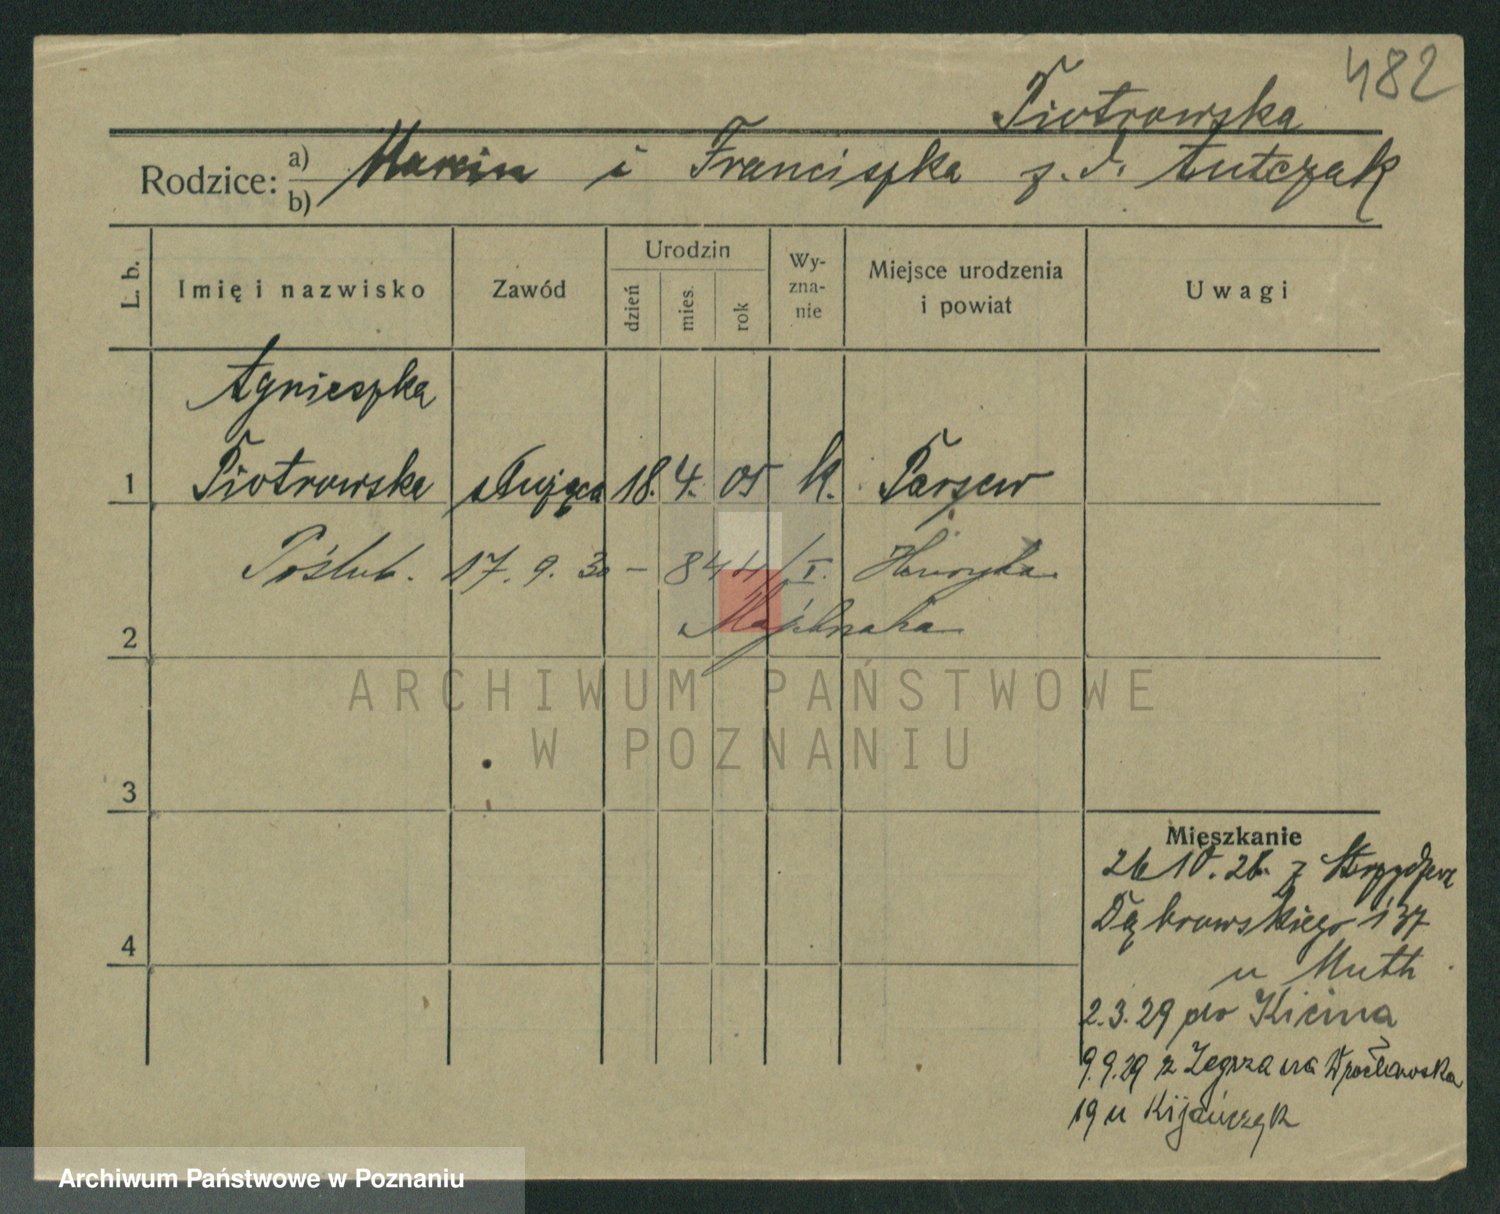 482
Piotrowska
Rodzice: a) b) Marcin i Franciszka z. d. Antczak
L. b. Imię i nazwisko Zawód Urodzin dzień mies. rok Wy-zna-nie Miejsce urodzenia i powiat Uwagi
Agnieszka
1 Piotrowska służąca 18. 4. 05 k. Parzew
Poślub. 17. 9. 30 - 844/I. Henryka
2 Majchrzaka
ARCHIWUM PAŃSTWOWE
W POZNANIU
3
Mieszkanie
26 10. 26. z
Dąbrowskiego 137
4 u Muth
2.3.29 do Kicina
9.9.29 z Zegrza na Wrocławska
19 u Kijańczyk
Archiwum Państwowe w Poznaniu